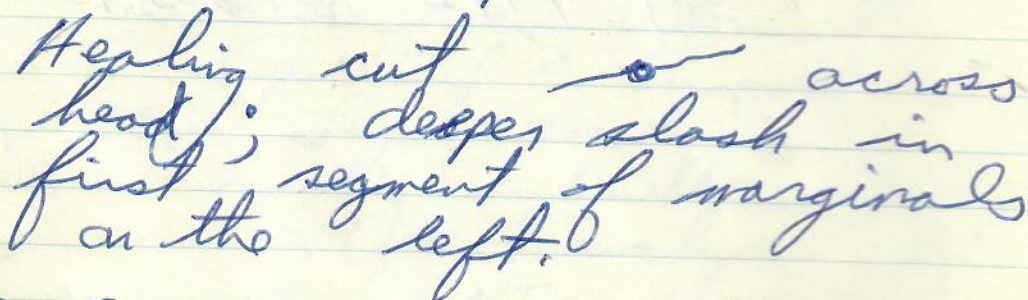 Healing cut across
head); deeper slash in
first segment of marginals
on the left.